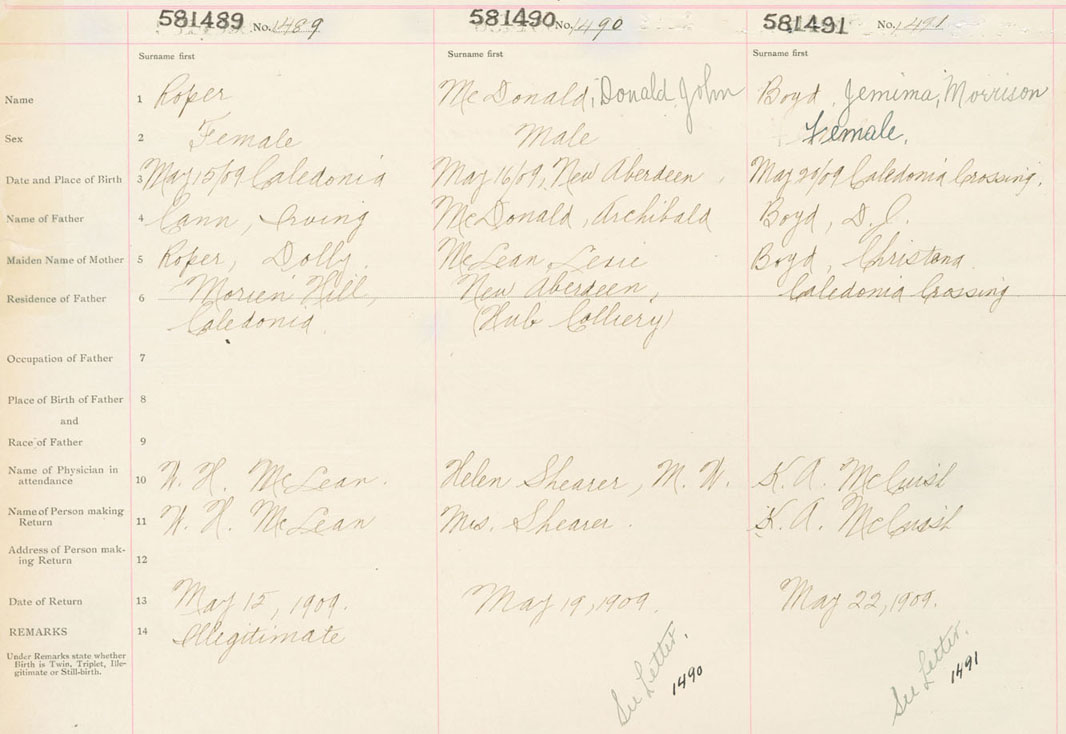 581489 No. 1489 581490 No. 1490 581491 No. 1491
Surname first Surname first Surname first
Name 1 Roper McDonald, Donald John Boyd, Jemima, Morrison
Sex 2 Female Male Female.
Date and Place of Birth 3 May 15/09 Caledonia May 16/09, New Aberdeen May 20/09 Caledonia Crossing.
Name of Father 4 Cann, Irving McDonald, Archibald Boyd, D.J.
Maiden Name of Mother 5 Roper, Dolly. McLean Boyd, Christana
Residence of Father 6 Morien Hill, New Aberdeen, Caledonia Crossing
Caledonia. (Hub Colliery)
Occupation of Father 7
Place of Birth of Father 8
and
Race of Father 9
Name of Physician in
attendance 10 W. H. McLean. Helen Shearer, M. W. K. A. McCuish
Name of Person making
Return 11 W. H. McLean Mrs. Shearer. K. A. McCuish
Address of Person mak-
ing Return 12
Date of Return 13 May 15, 1909. May 19, 1909. May 22, 1909.
REMARKS 14 Illegitimate
Under Remarks state whether
Birth is Twin, Triplet, Ille-
gitimate or Still-birth.
See Letter. 1490 See Letter. 1491